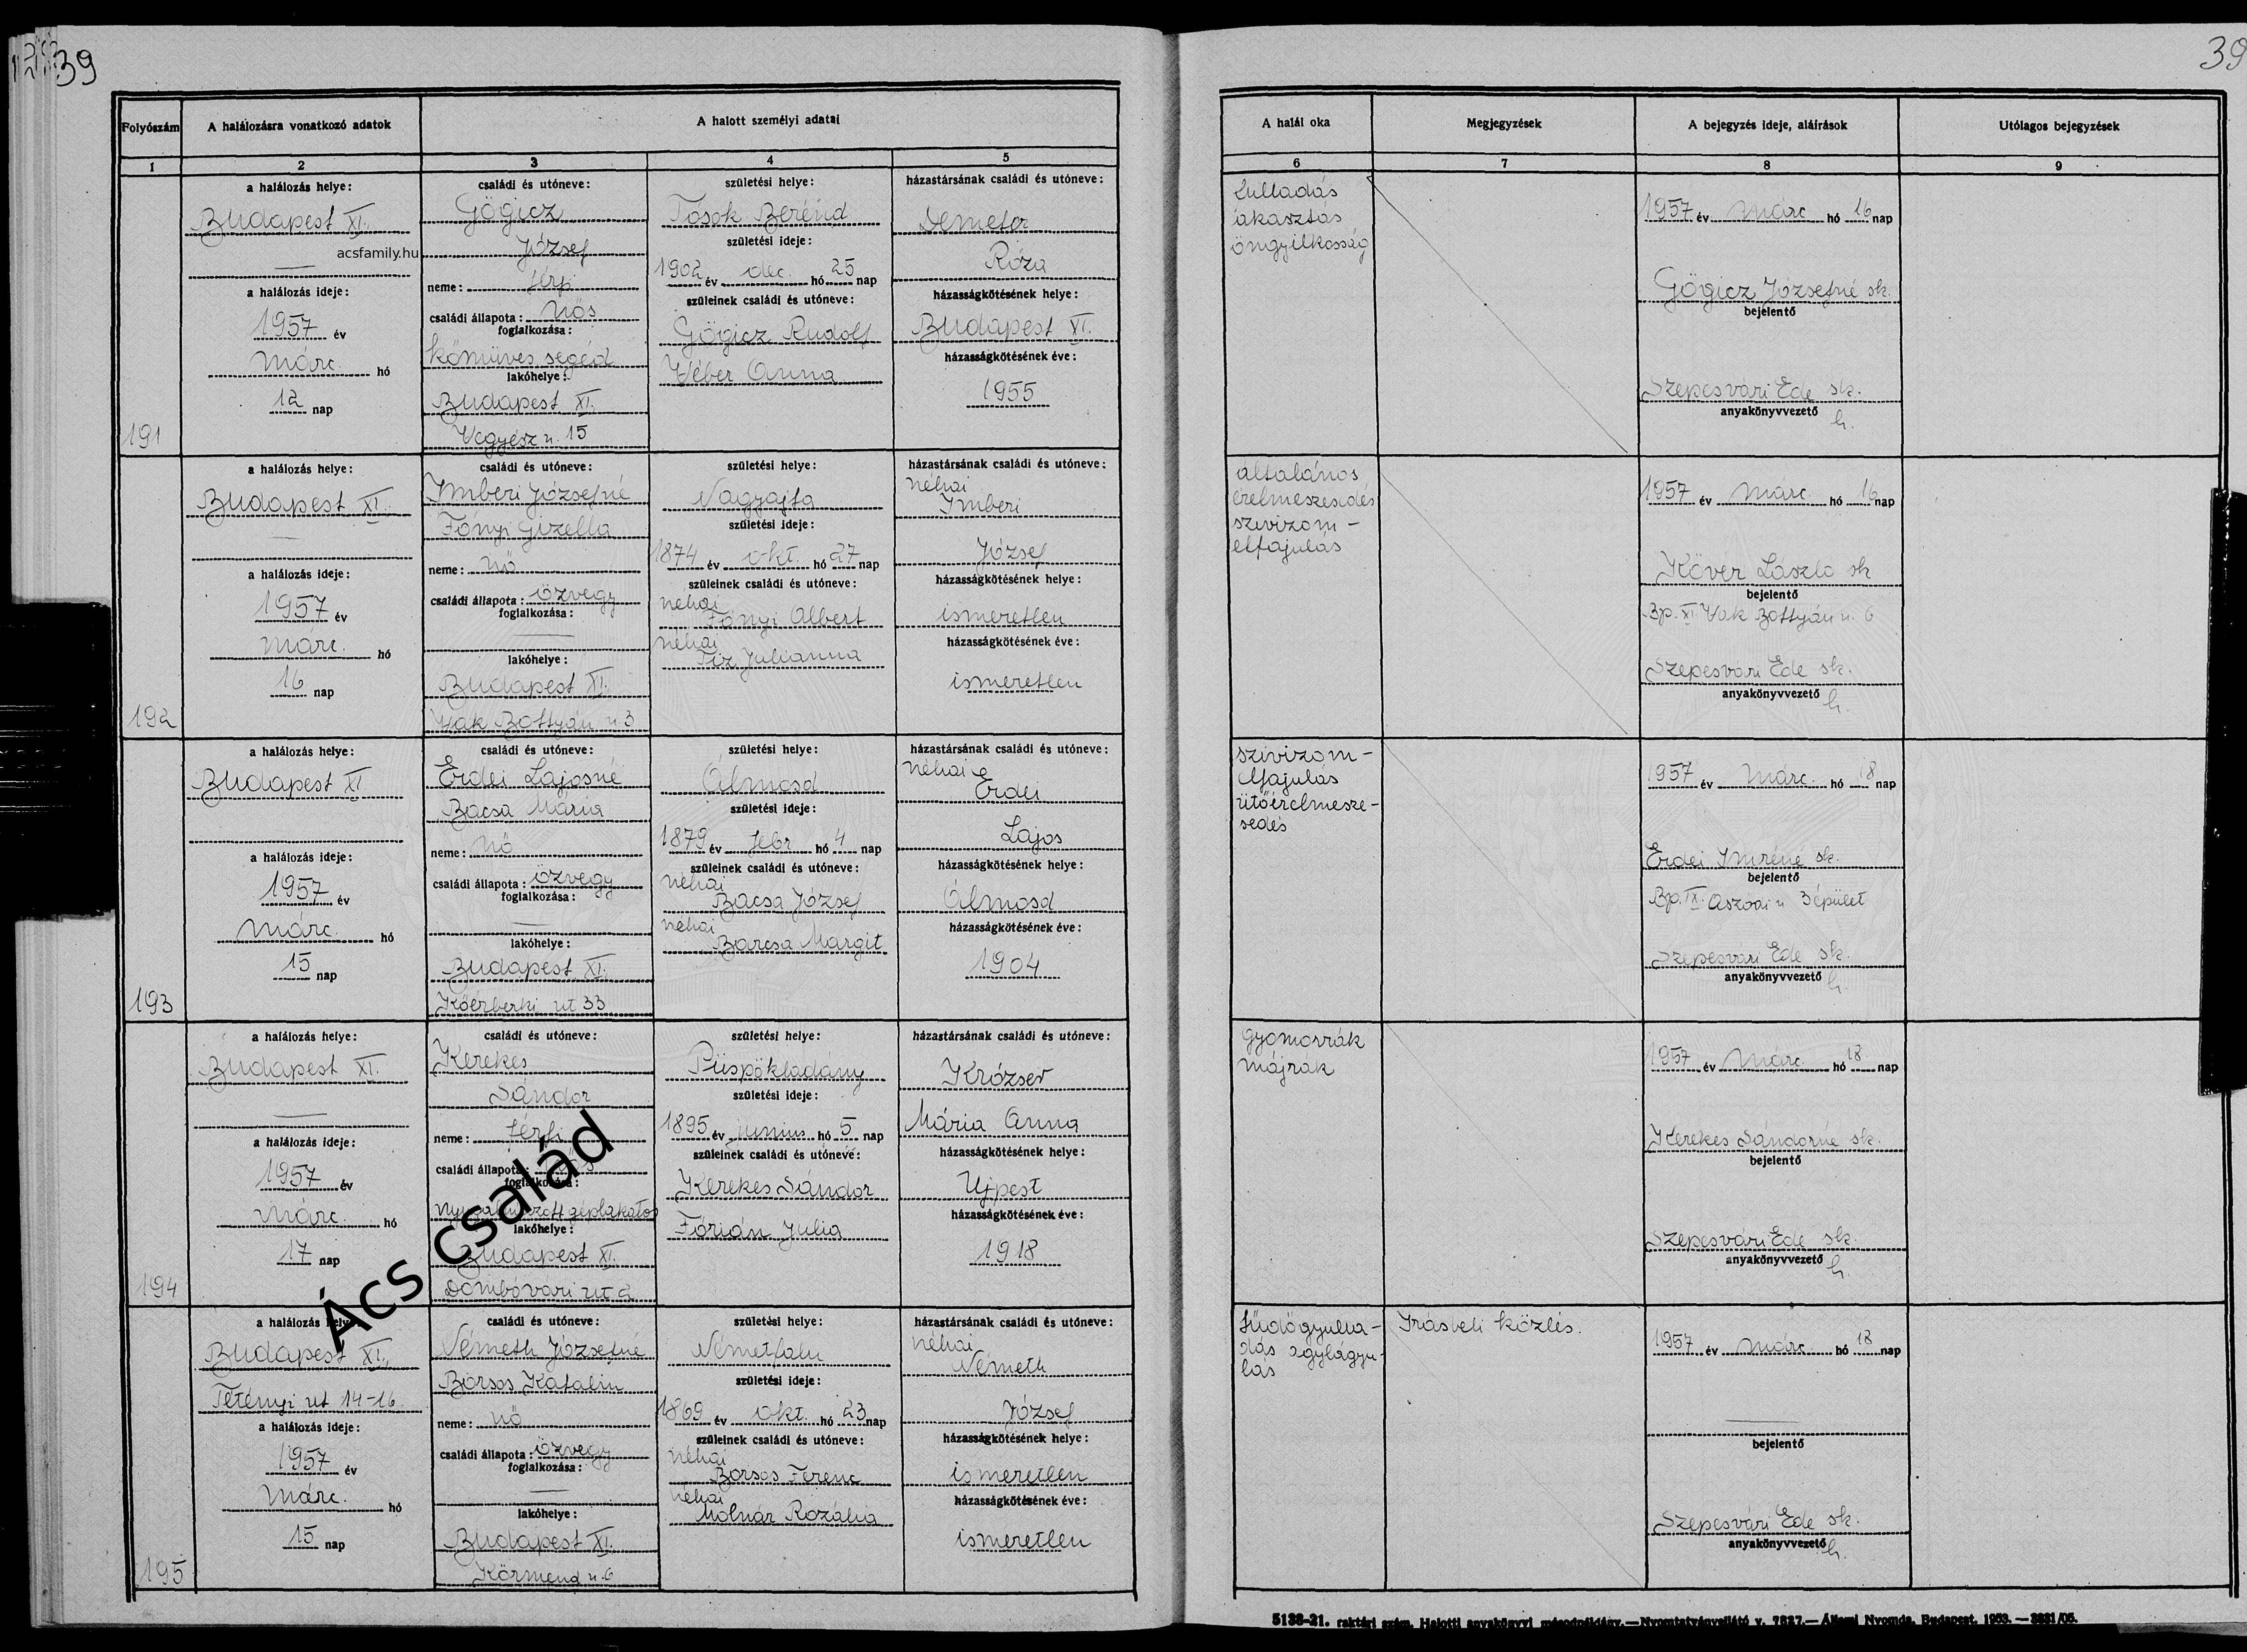 39
39
Folyószám
A halálozásra vonatkozó adatok
A halott személyi adatai
1
2
3
4
5
A halál oka
Megjegyzések
A bejegyzés ideje, aláírások
Utólagos bejegyzések
6
7
8
9
191
a halálozás helye:
Budapest XI.
acsfamily.hu
a halálozás ideje:
1957 év
márc. hó
12 nap
családi és utóneve:
Gögicz
József
neme: férfi
családi állapota: nős
foglalkozása:
kőműves segéd
lakóhelye:
Budapest XI.
Vegyész u. 15
születési helye:
Tósok Berénd
születési ideje:
1902 év dec. hó 25 nap
szüleinek családi és utóneve:
Gögicz Rudolf
Véber Anna
házastársának családi és utóneve:
Demeter
Róza
házasságkötésének helye:
Budapest XI.
házasságkötésének éve:
1955
fulladás
akasztás
öngyilkosság
1957 év márc hó 16 nap
Gögicz Józsefné sk.
bejelentő
Szepesvári Ede sk.
anyakönyvvezető h.
192
a halálozás helye:
Budapest XI.
a halálozás ideje:
1957 év
márc. hó
16 nap
családi és utóneve:
Imberi Józsefné
Fónyi Gizella
neme: nő
családi állapota: özvegy
foglalkozása:
lakóhelye:
Budapest XI.
Vak Bottyán u. 3
születési helye:
Nagyajta
születési ideje:
1874 év okt. hó 27 nap
szüleinek családi és utóneve:
néhai
Fónyi Albert
néhai
Julianna
házastársának családi és utóneve:
néhai
Imberi
József
házasságkötésének helye:
ismeretlen
házasságkötésének éve:
ismeretlen
általános
érelmeszesedés
szivizom-
elfajulás
1957 év márc. hó 16 nap
Kövér László sk
bejelentő
Bp. XI. Vak Bottyán u. 6
Szepesvári Ede sk.
anyakönyvvezető h.
193
a halálozás helye:
Budapest XI
a halálozás ideje:
1957 év
márc. hó
15 nap
családi és utóneve:
Erdei Lajosné
Bacsa Mária
neme: nő
családi állapota: özvegy
foglalkozása:
lakóhelye:
Budapest XI.
Kőérberki ut 33
születési helye:
Álmosd
születési ideje:
1879 év febr hó 4 nap
szüleinek családi és utóneve:
néhai
Bacsa József
néhai
Barcsa Margit
házastársának családi és utóneve:
néhai
Erdei
Lajos
házasságkötésének helye:
Álmosd
házasságkötésének éve:
1904
szivizom-
elfajulás
ütőérelmesze-
sedés
1957 év márc. hó 18 nap
Erdei Imréné sk.
bejelentő
Bp. IX. Aszódi u 3 épület
Szepesvári Ede sk.
anyakönyvvezető h.
194
a halálozás helye:
Budapest XI.
a halálozás ideje:
1957 év
márc. hó
17 nap
családi és utóneve:
Kerekes
Sándor
neme: férfi
családi állapota: nős
foglalkozása:
nyugalmazott géplakatos
lakóhelye:
Budapest XI.
Dombóvári ut 2
születési helye:
Püspökladány
születési ideje:
1895 év junius hó 5 nap
szüleinek családi és utóneve:
Kerekes Sándor
Fórián Julia
házastársának családi és utóneve:
Krózser
Mária Anna
házasságkötésének helye:
Ujpest
házasságkötésének éve:
1918
gyomorrák
májrák
1957 év márc. hó 18 nap
Kerekes Sándorné sk.
bejelentő
Szepesvári Ede sk.
anyakönyvvezető h.
Ács család
195
a halálozás helye:
Budapest XI.
Tétényi ut 14-16.
a halálozás ideje:
1957 év
márc. hó
15 nap
családi és utóneve:
Németh Józsefné
Borsos Katalin
neme: nő
családi állapota: özvegy
foglalkozása:
lakóhelye:
Budapest XI.
Körmend u. 6
születési helye:
Németfalu
születési ideje:
1869 év okt. hó 23 nap
szüleinek családi és utóneve:
néhai
Borsos Ferenc
néhai
Molnár Rozália
házastársának családi és utóneve:
néhai
Németh
József
házasságkötésének helye:
ismeretlen
házasságkötésének éve:
ismeretlen
tüdőgyulla-
dás agylágyu-
lás
Irásbeli közlés.
1957 év márc. hó 18 nap
bejelentő
Szepesvári Ede sk.
anyakönyvvezető h.
5138-21. raktári szám. Halotti anyakönyvi másodpéldány.—Nyomtatványellátó v. 7827.—Állami Nyomda, Budapest, 1953.—3831/05.